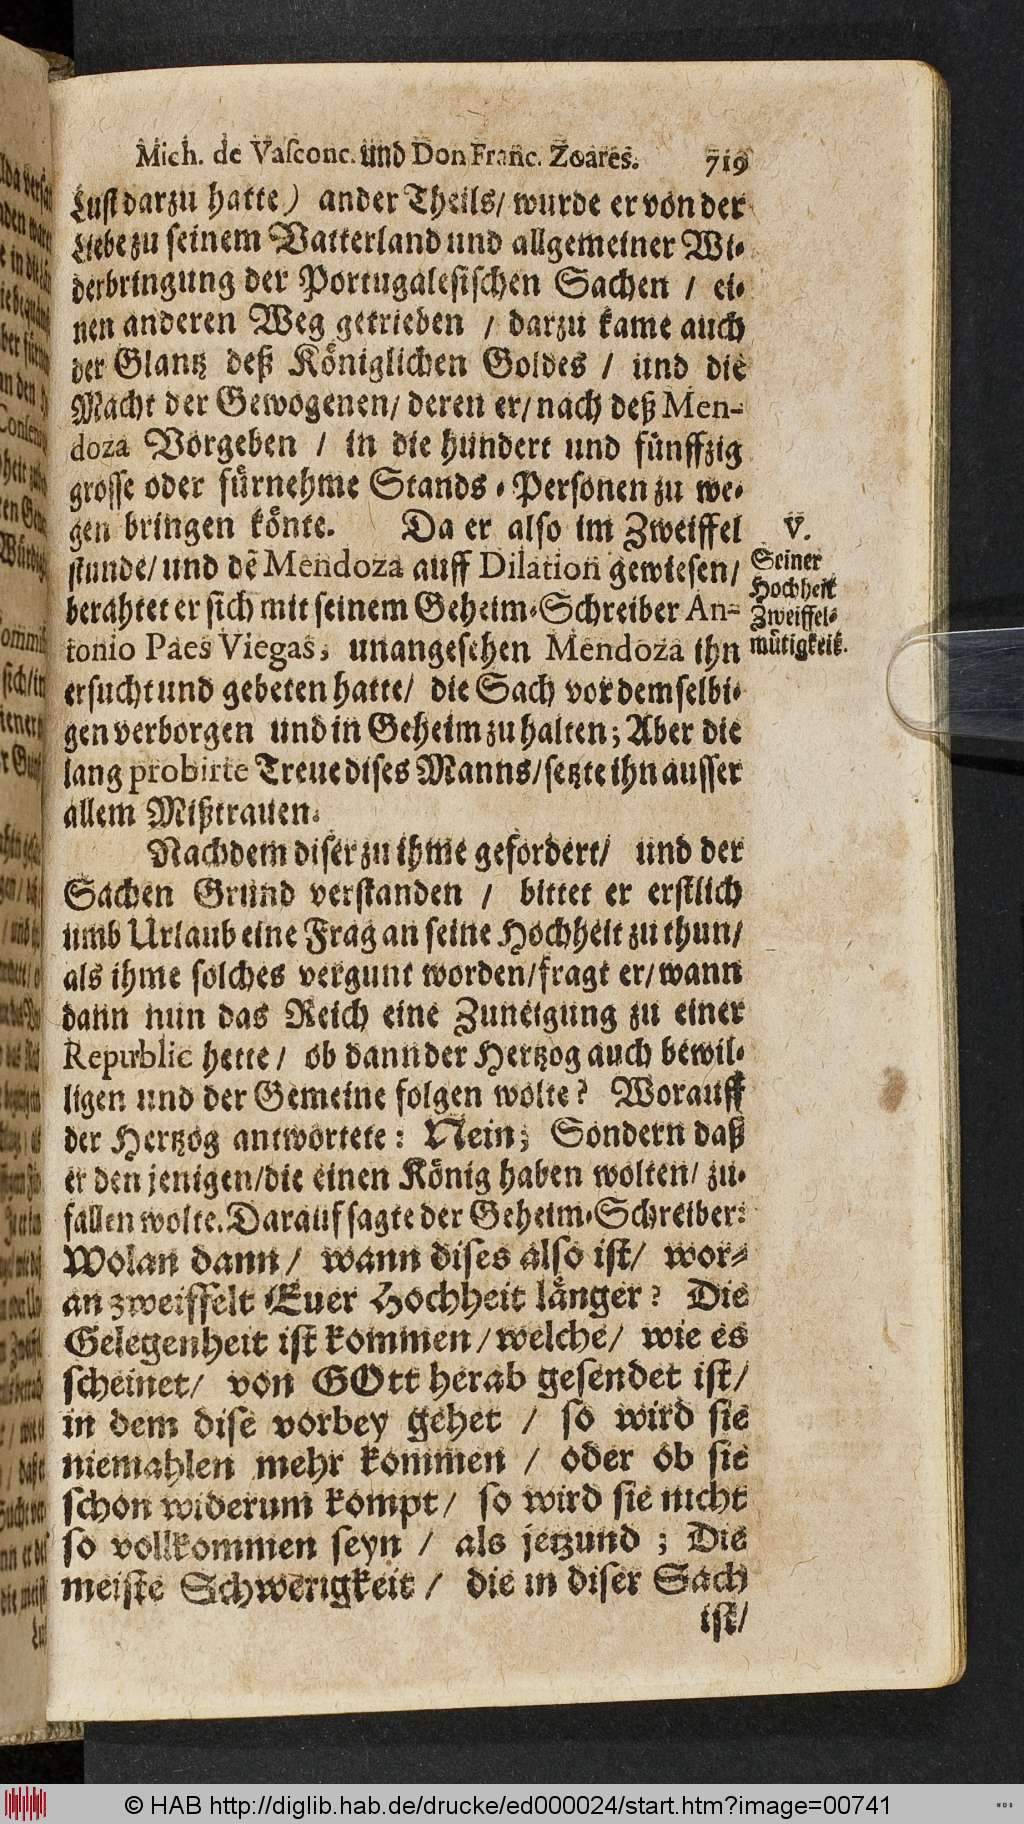 Mich. de Vasconc. und Don Franc. Zoares. 719
Lust darzu hatte) ander Theils/ wurde er von der
Liebe zu seinem Vatterland und allgemeiner Wi-
derbringung der Portugalesischen Sachen / ei-
nen anderen Weg getrieben / darzu kame auch
der Glantz deß Königlichen Goldes / und die
Macht der Gewogenen/ deren er/ nach deß Men-
doza Vorgeben / in die hundert und fünffzig
grosse oder fürnehme Stands-Personen zu we-
gen bringen könte. Da er also im Zweiffel
stunde/ und dẽ Mendoza auff Dilation gewiesen/
berahtet er sich mit seinem Geheim-Schreiber An-
tonio Paes Viegas, unangesehen Mendoza ihn
ersucht und gebeten hatte/ die Sach vor demselbi-
gen verborgen und in Geheim zu halten; Aber die
lang probirte Treue dises Manns/ setzte ihn ausser
allem Mißtrauen.
V.
Seiner
Hochheit
Zweiffel-
mütigkeit.
Nachdem diser zu ihme gefordert/ und der
Sachen Grund verstanden / bittet er erstlich
umb Urlaub eine Frag an seine Hochheit zu thun/
als ihme solches vergunt worden/ fragt er/ wann
dann nun das Reich eine Zuneigung zu einer
Republic hette/ ob dann der Hertzog auch bewil-
ligen und der Gemeine folgen wolte? Worauff
der Hertzog antwortete: Nein; Sondern daß
er den jenigen/ die einen König haben wolten/ zu-
fallen wolte. Darauf sagte der Geheim-Schreiber:
Wolan dann/ wann dises also ist/ wor-
an zweiffelt Euer Hochheit länger? Die
Gelegenheit ist kommen/ welche/ wie es
scheinet/ von GOtt herab gesendet ist/
in dem dise vorbey gehet / so wird sie
niemahlen mehr kommen / oder ob sie
schon widerum kompt/ so wird sie nicht
so vollkommen seyn / als jetzund ; Die
meiste Schwerigkeit / die in diser Sach
ist/
© HAB http://diglib.hab.de/drucke/ed000024/start.htm?image=00741